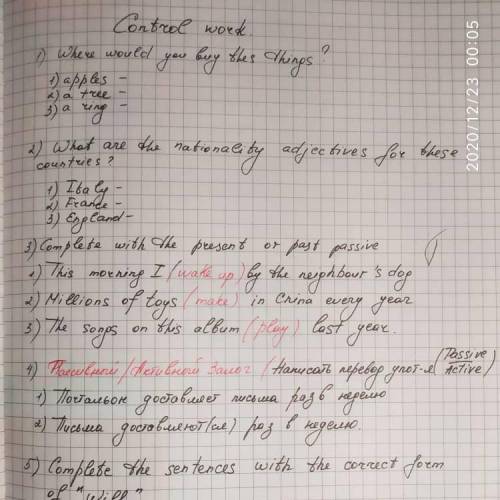 Control work.
1) Where would you buy thes things?
1) apples -
2) a tree -
3) a ring -
2) What are the nationality adjectives for these
countries?
1) Italy -
2) France -
3) England -
3) Complete with the present or past passive
1) This morning I (wake up) by the neighbour's dog
2) Millions of toys (make) in China every year
3) The songs on this album (play) last year.
4) Пассивной/Активной Залог (Написать перевод употр-я (Passive
Active)
1) Постальон доставляет письма раз в неделю
2) Письма доставляют(ся) раз в неделю.
5) Complete the sentences with the correct form
of "will"
2020/12/23 00:05